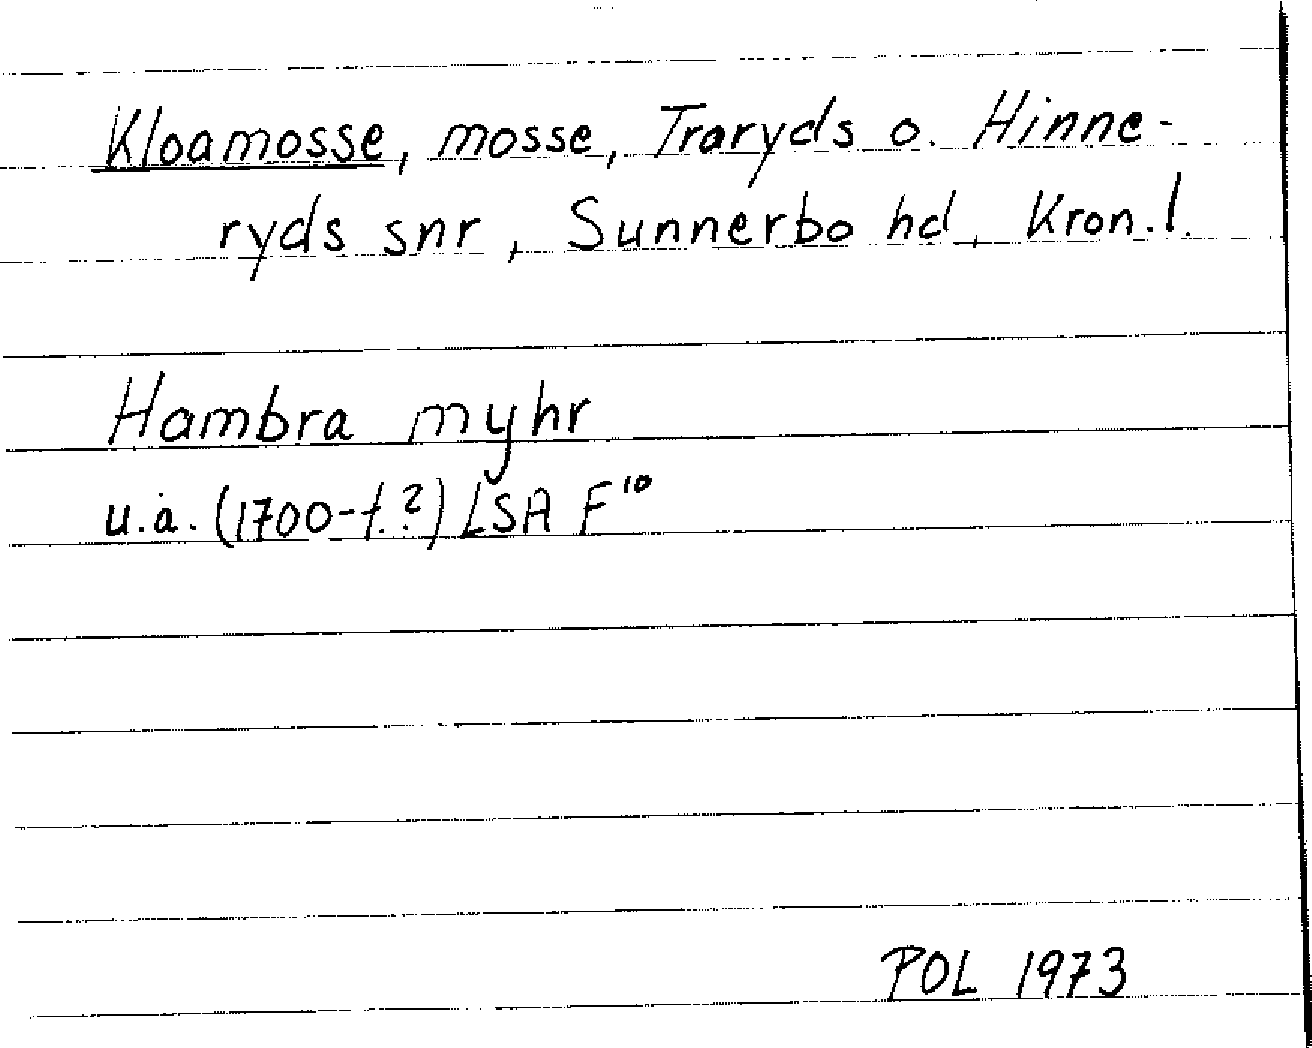 Kloamosse, mosse, Traryds o. Hinne-
ryds snr, Sunnerbo hd, Kron. l.
Hambra myhr
u.å. (1700-t.?) LSA F¹⁰
POL 1973